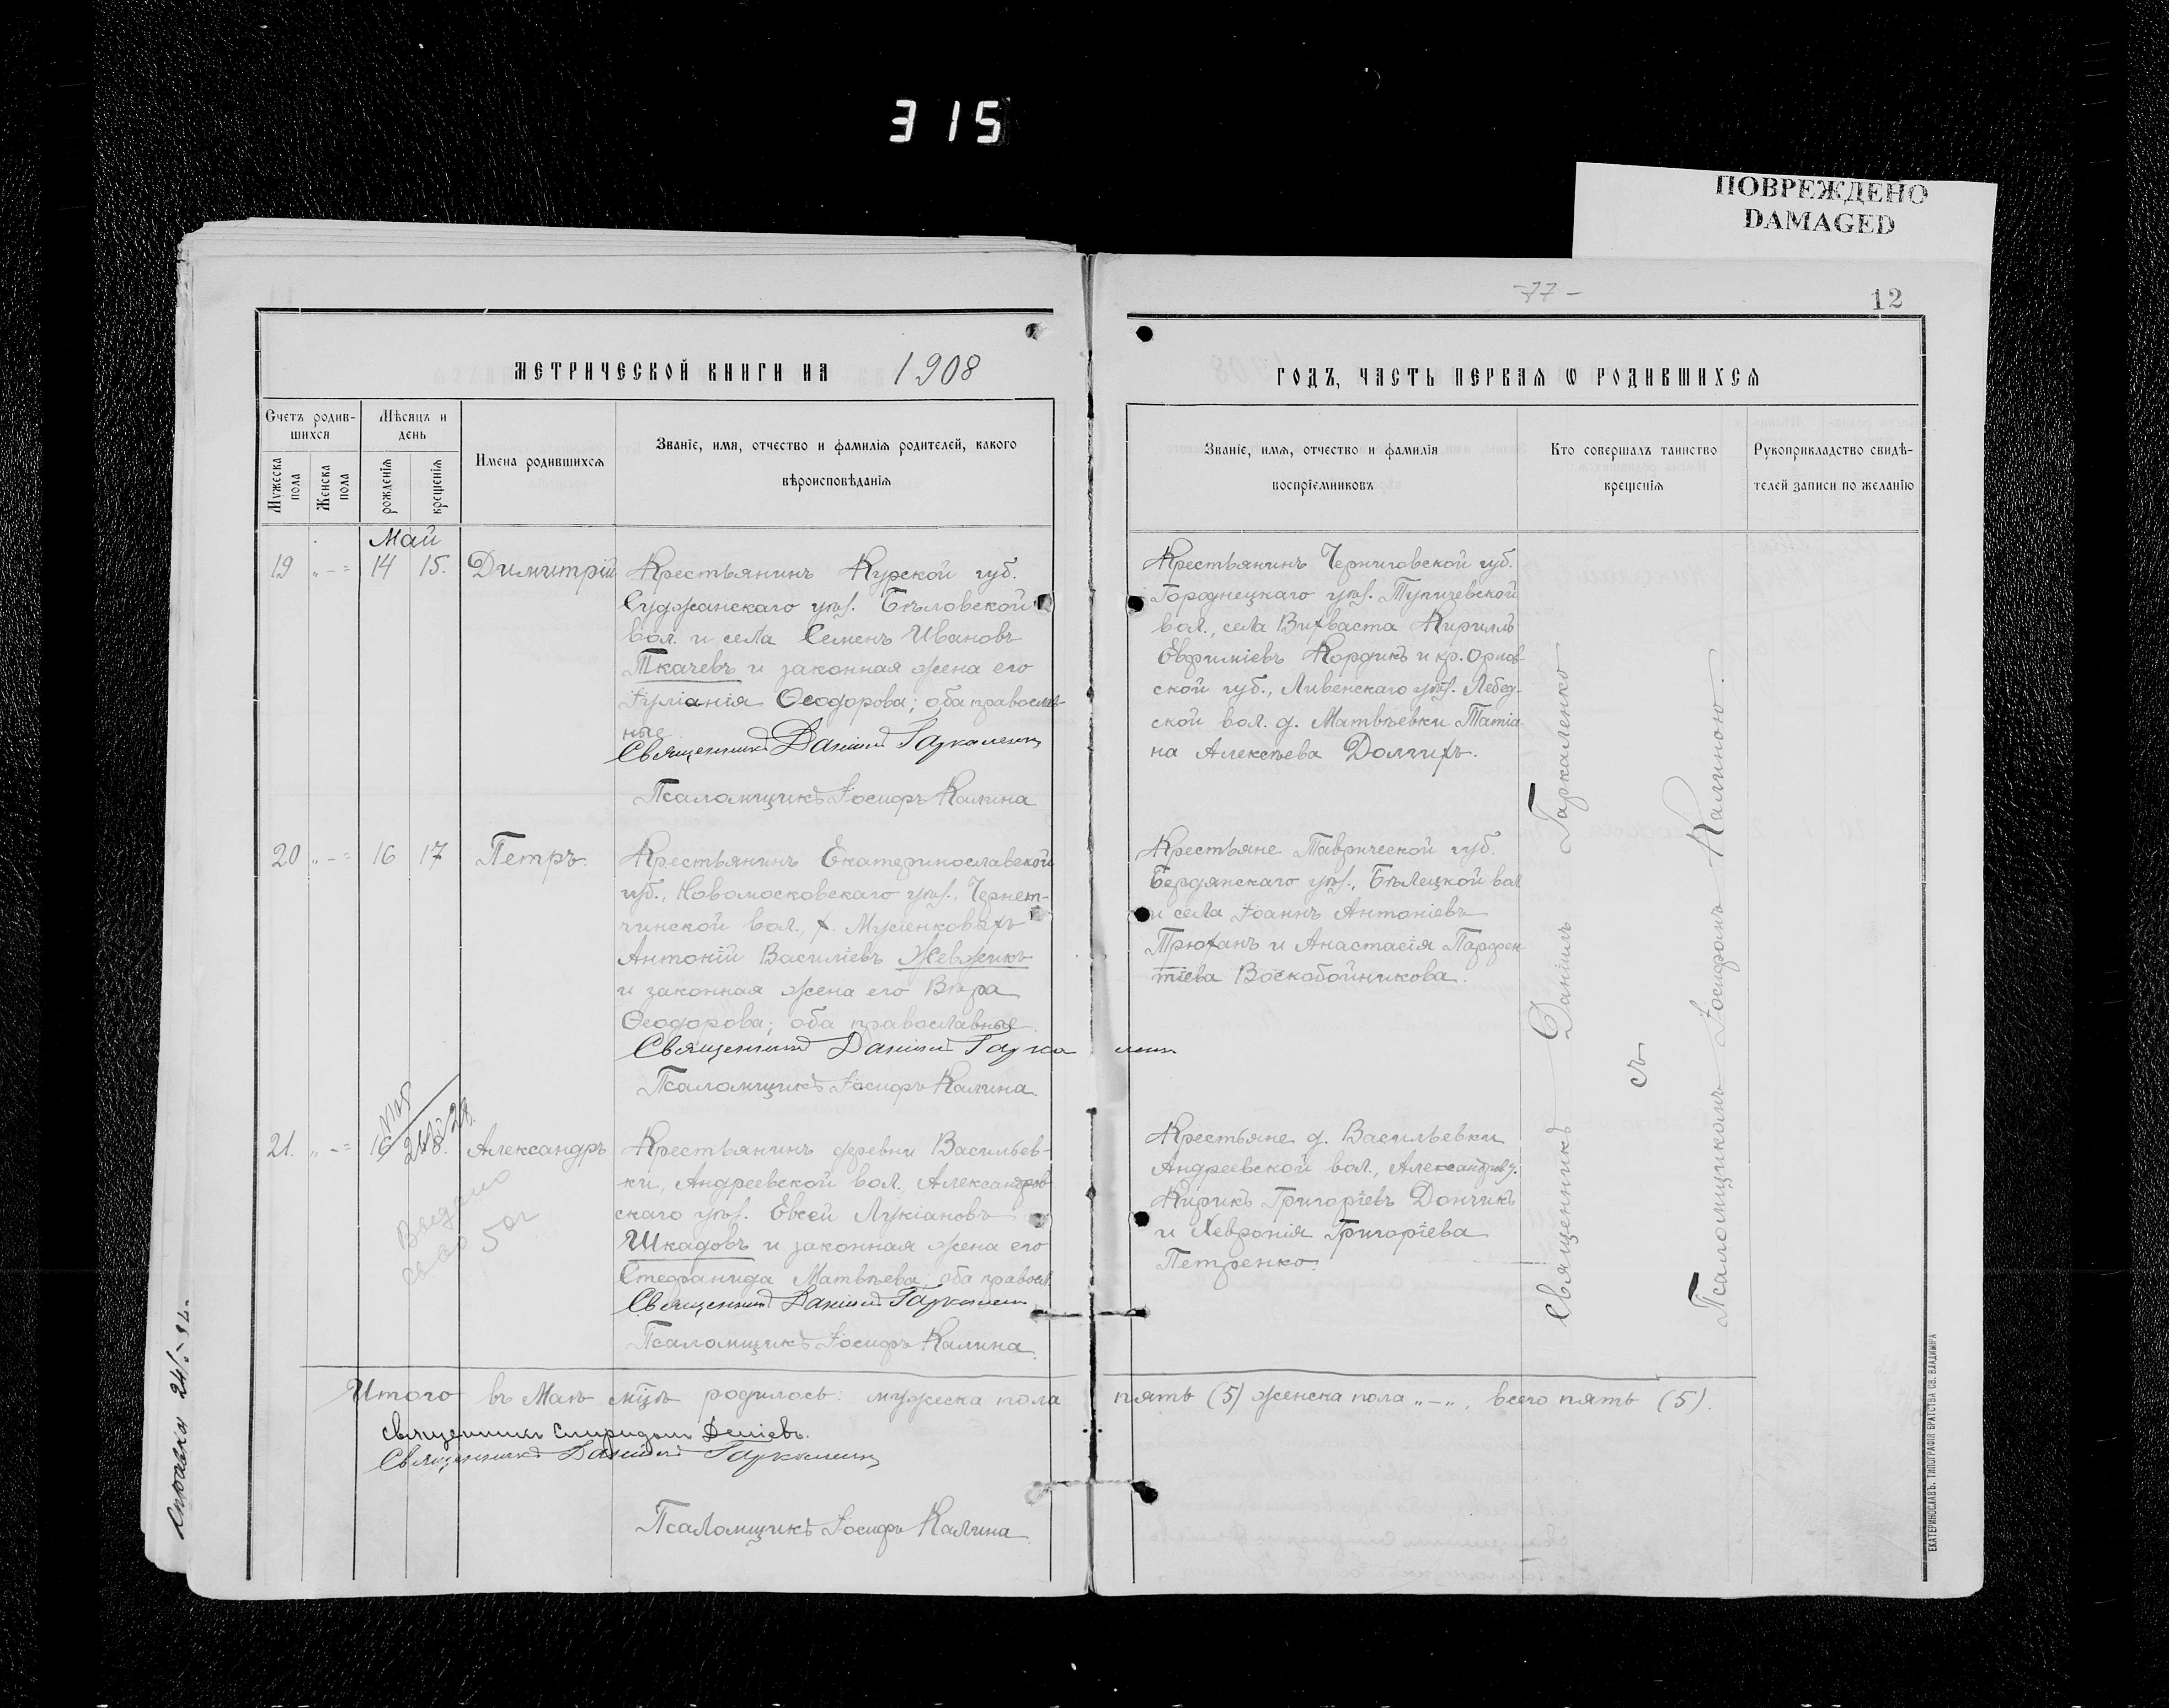 315
ПОВРЕЖДЕНО
DAMAGED
77 -
12
МЕТРИЧЕСКОЙ КНИГИ НА 1908
ГОДЪ, ЧАСТЬ ПЕРВАЯ Ѡ РОДИВШИХСЯ
Счетъ родив-
шихся
Мужеска пола
Женска пола
Мѣсяцъ и
день
рожденія
крещенія
Имена родившихся
Званіе, имя, отчество и фамилія родителей, какого
вѣроисповѣданія
Званіе, имя, отчество и фамилія
воспріемниковъ
Кто совершалъ таинство
крещенія
Рукоприкладство свидѣ-
телей записи по желанію
Май
19 „-" 14 15. Димитрій
Крестьянинъ Курской губ.
Суджанскаго уѣз. Бѣловской
вол. и села Семенъ Ивановъ
Ткачевъ и законная жена его
Іуліанія Ѳеодорова; оба православ-
ные
Священникъ Даніилъ Гаркаленко
Псаломщикъ Іосифъ Калина
Крестьянинъ Черниговской губ.
Городнецкаго уѣз. Тупичевской
вол., села Вихваста Кириллъ
Евфиміевъ Кордикъ и кр. Орлов-
ской губ., Ливенскаго уѣз. Лебед-
ской вол. д. Матвѣевки Татіа
на Алексѣева Долгихъ.
20 „-" 16 17 Петръ.
Крестьянинъ Екатеринославской
губ., Новомосковскаго уѣз., Чернет-
чинской вол., х. Мусіенковыхъ
Антоній Василіевъ Жевжикъ
и законная жена его Вѣра
Ѳеодорова; оба православные
Священникъ Даніилъ Гаркаленко
Псаломщикъ Іосифъ Калина.
Крестьяне Таврической губ.
Бердянскаго уѣз., Бѣлецкой вол.
и села Іоаннъ Антоніевъ
Трюханъ и Анастасія Парфен
тіева Воскобойникова.
21. „-" 16 28. Александръ
Выдано
Крестьянинъ деревни Васильев-
ки, Андреевской вол. Александров
скаго уѣз. Евсей Лукіановъ
Шкадовъ и законная жена его
Стефанида Матвѣева; оба правосл.
Священникъ Даніилъ Гаркаленко
Псаломщикъ Іосифъ Калина.
Крестьяне д. Васильевки
Андреевской вол., Александров у.
Кирикъ Григоріевъ Дончикъ
и Хевронія Григоріева
Петренко.
Священникъ Даніилъ Гаркаленко
съ
Псаломщикомъ Іосифомъ Калиною.
Итого въ Маѣ мцѣ родилось: мужеска пола пять (5) женска пола „-„, всего пять (5).
Священникъ Спиридонъ
Священникъ Даніилъ Гаркаленко
Псаломщикъ Іосифъ Калина.
ЕКАТЕРИНОСЛАВЪ. ТИПОГРАФІЯ БРАТСТВА СВ. ВЛАДИМІРА